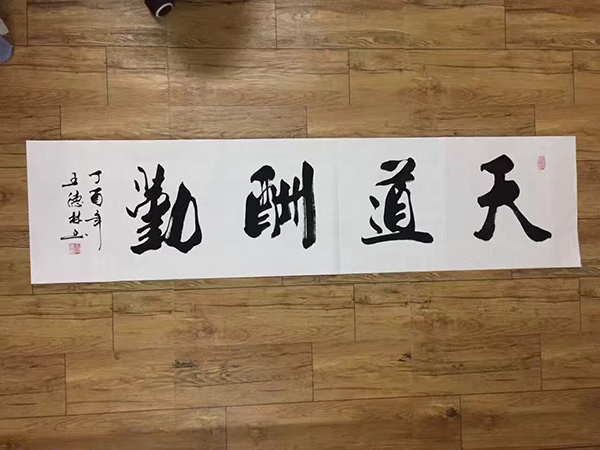 天道酬勤
丁酉年
王德林书